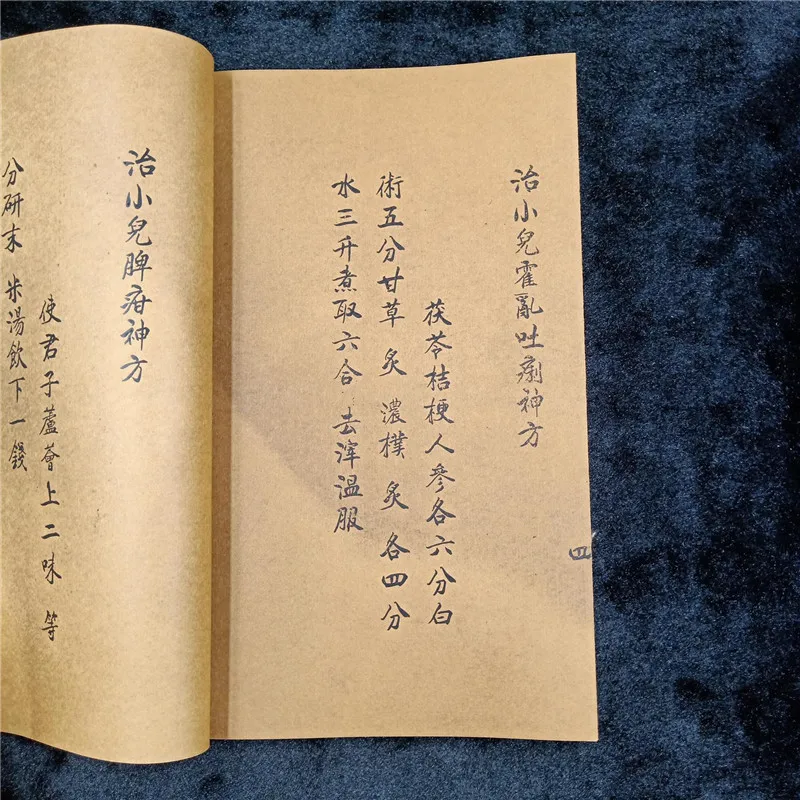 治小兒霍亂吐痢神方
茯苓桔梗人參各六分白
術五分甘草 炙 濃樸 炙 各四分
水三升煮取六合 去滓溫服
四
治小兒脾疳神方
使君子蘆薈上二味 等
分研末 米湯飲下一錢